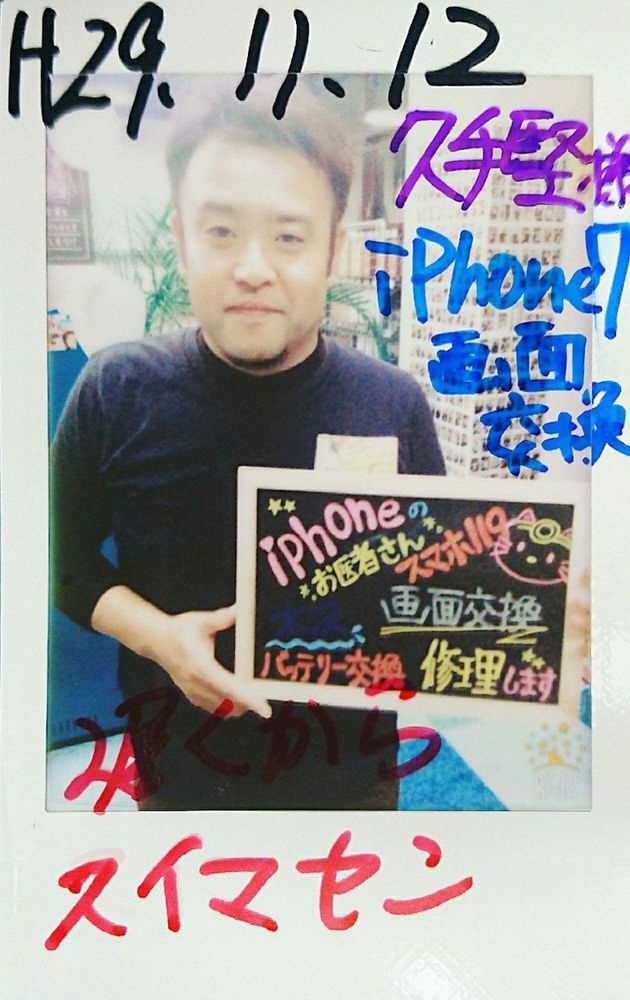 H29. 11. 12
久手堅様
iPhone7
画面
交換
iphoneの
お医者さん
スマホ119
水没
画面交換
バッテリー交換
修理します
遅くから
スイマセン